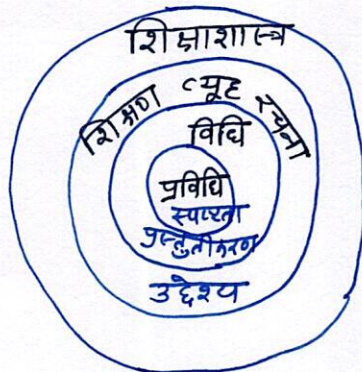 शिक्षाशास्त्र
शिक्षण व्यूह रचना
विधि
प्रविधि
स्पष्टता
प्रस्तुतीकरण
उद्देश्य